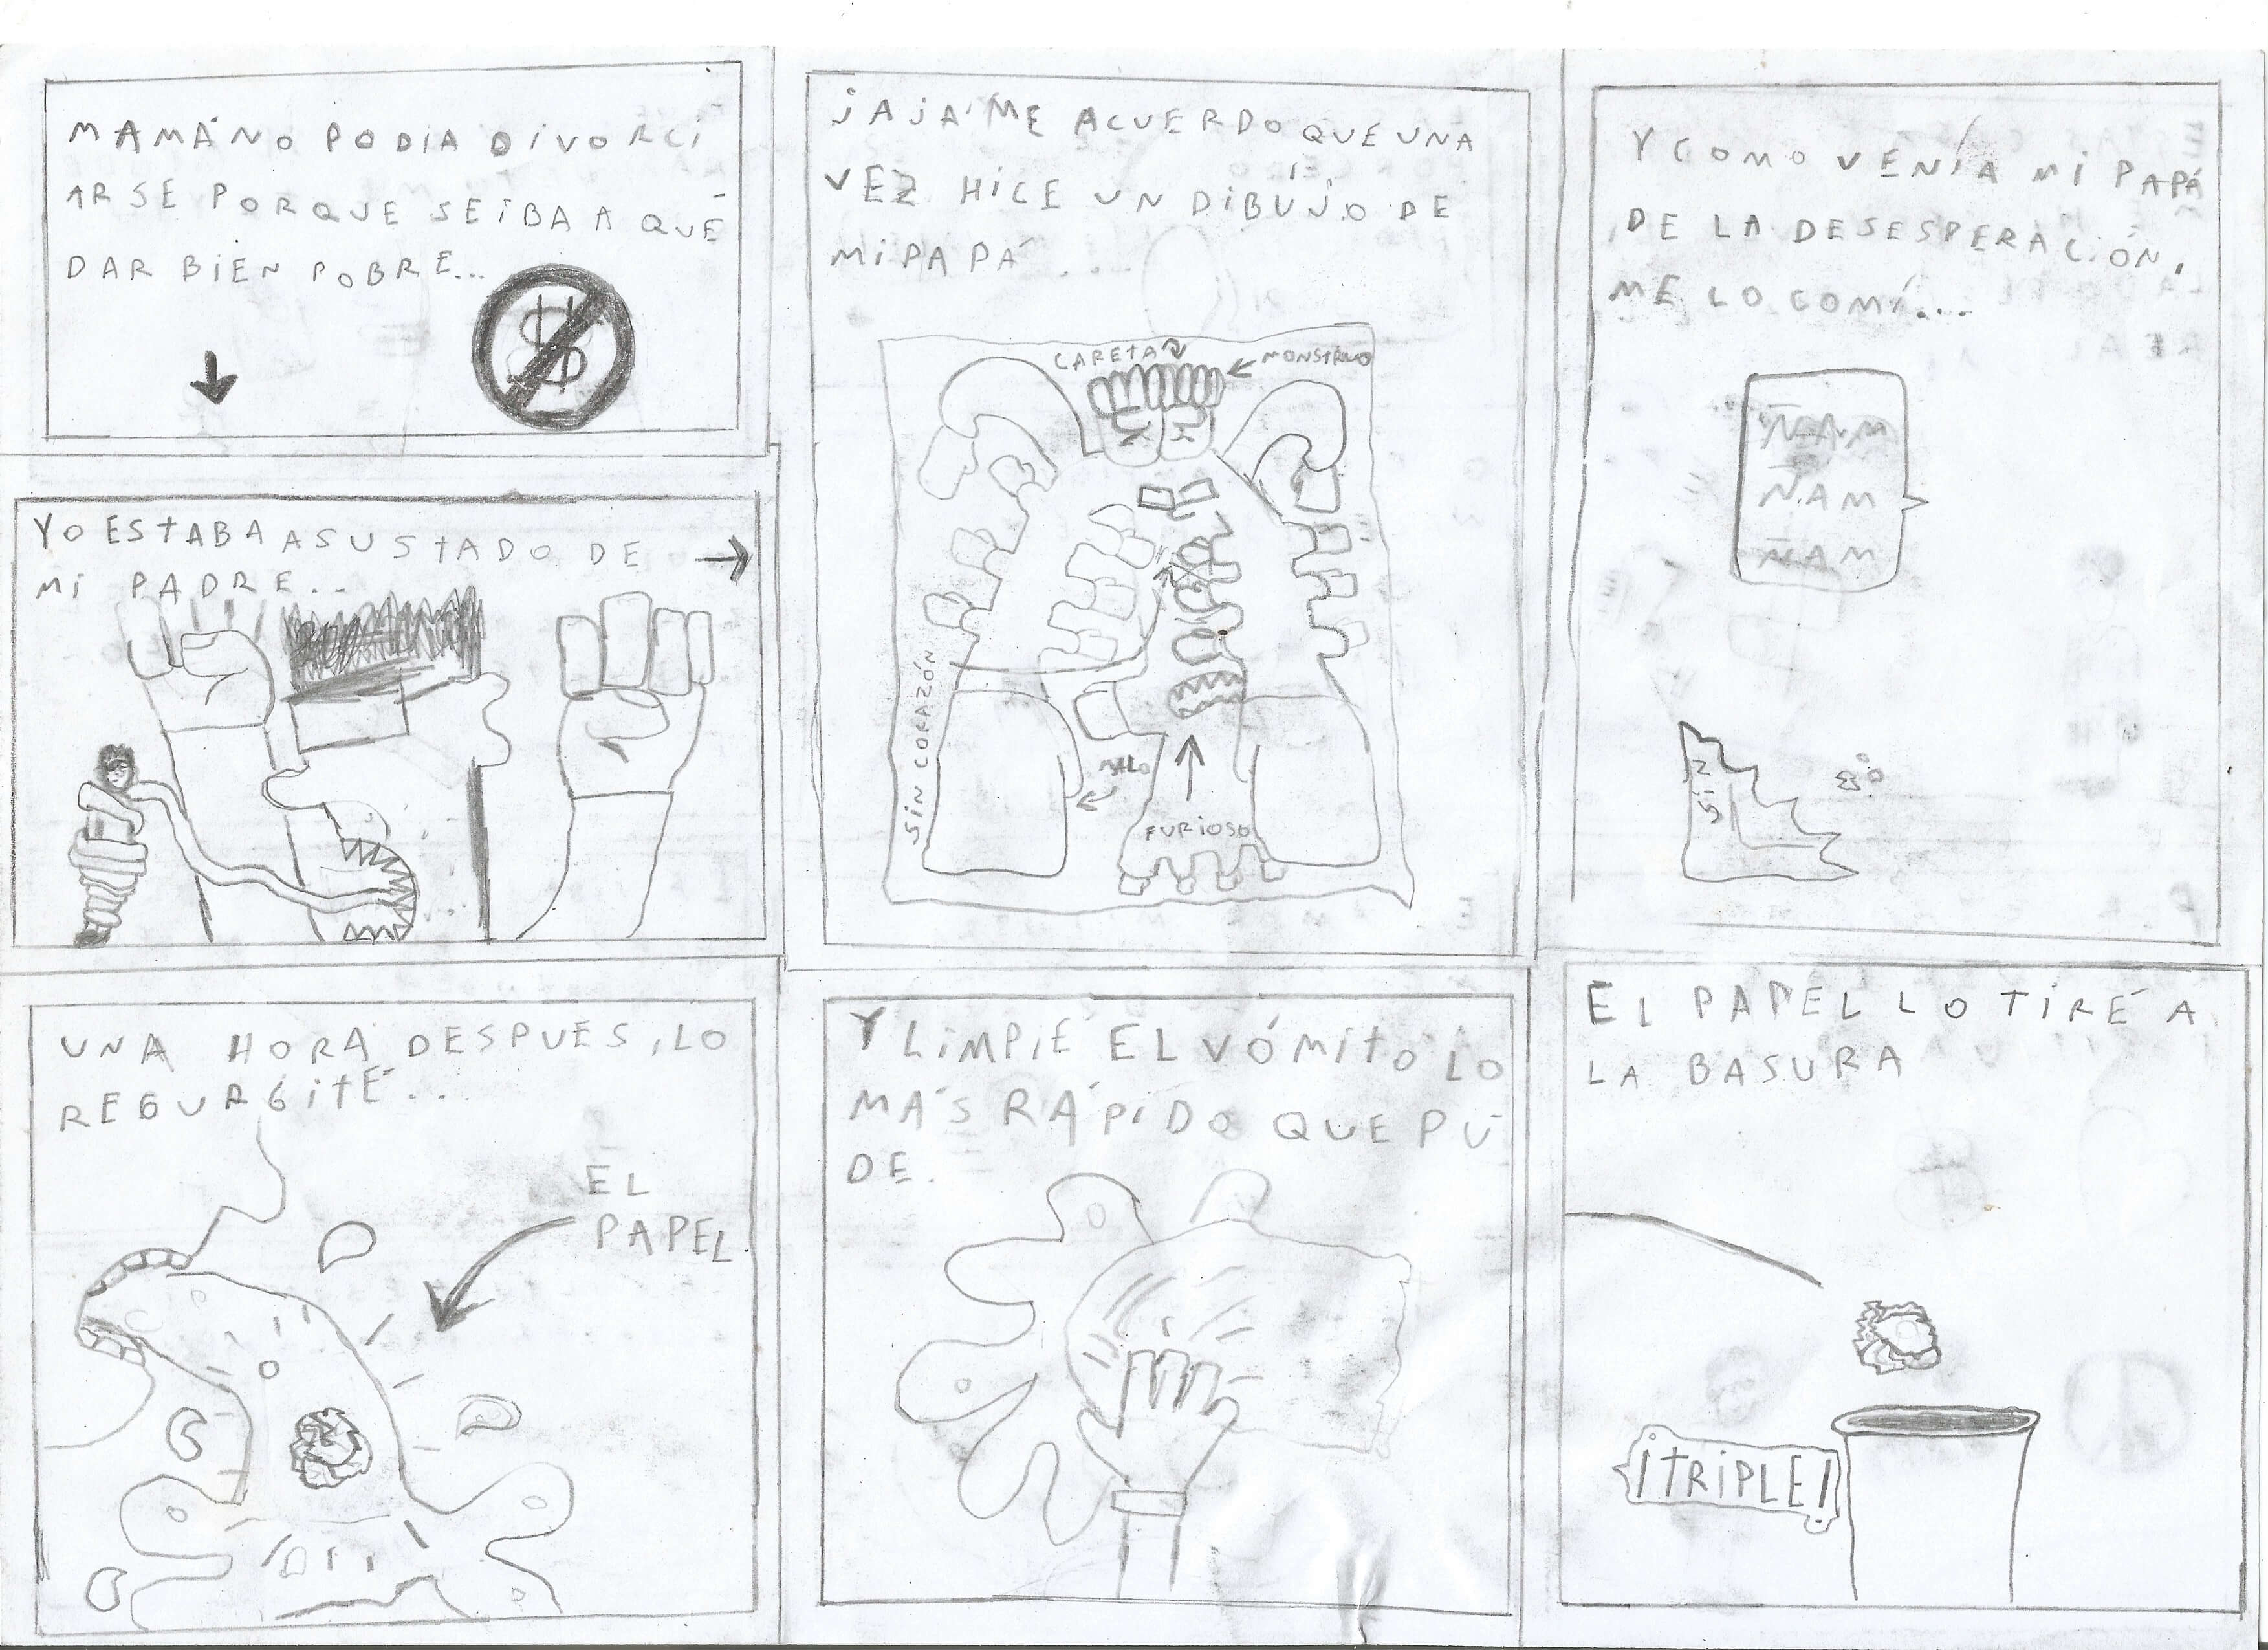 MAMÁ NO PODIA DIVORCI
ARSE PORQUE SE IBA A QUE
DAR BIEN POBRE...
$
YO ESTABA ASUSTADO DE
MI PADRE...
JAJA ME ACUERDO QUE UNA
VEZ HICE UN DIBUJO DE
MI PAPÁ...
CARETA
MONSTRUO
SIN CORAZÓN
MALO
FURIOSO
Y COMO VENÍA MI PAPÁ
DE LA DESESPERACIÓN,
ME LO COMÍ...
ÑAM
ÑAM
ÑAM
SIN
UNA HORA DESPUES, LO
REGURGITÉ...
EL
PAPEL
Y LIMPIÉ EL VÓMITO LO
MÁS RÁPIDO QUE PU
DE.
EL PAPEL LO TIRÉ A
LA BASURA
¡TRIPLE!